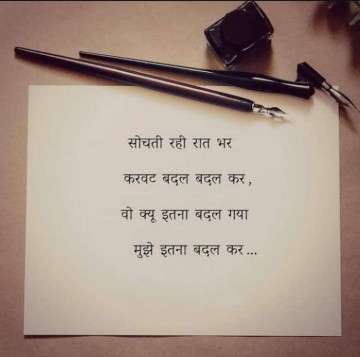 सोचती रही रात भर
करवट बदल बदल कर,
वो क्यू इतना बदल गया
मुझे इतना बदल कर...